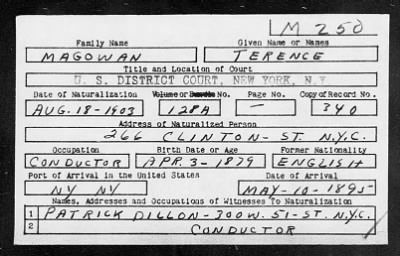 M 250
Family Name Given Name or Names
MAGOWAN TERENCE
Title and Location of Court
U. S. DISTRICT COURT, NEW YORK, N.Y
Date of Naturalization Volume or Bundle No. Page No. Copy of Record No.
AUG. 18-1903 128A — 340
Address of Naturalized Person
266 CLINTON-ST. N.Y.C.
Occupation Birth Date or Age Former Nationality
CONDUCTOR APR. 3-1879 ENGLISH
Port of Arrival in the United States Date of Arrival
NY NY MAY-10-1895
Names, Addresses and Occupations of Witnesses To Naturalization
1 PATRICK DILLON-300W. 51-ST. N.Y.C.
2 CONDUCTOR